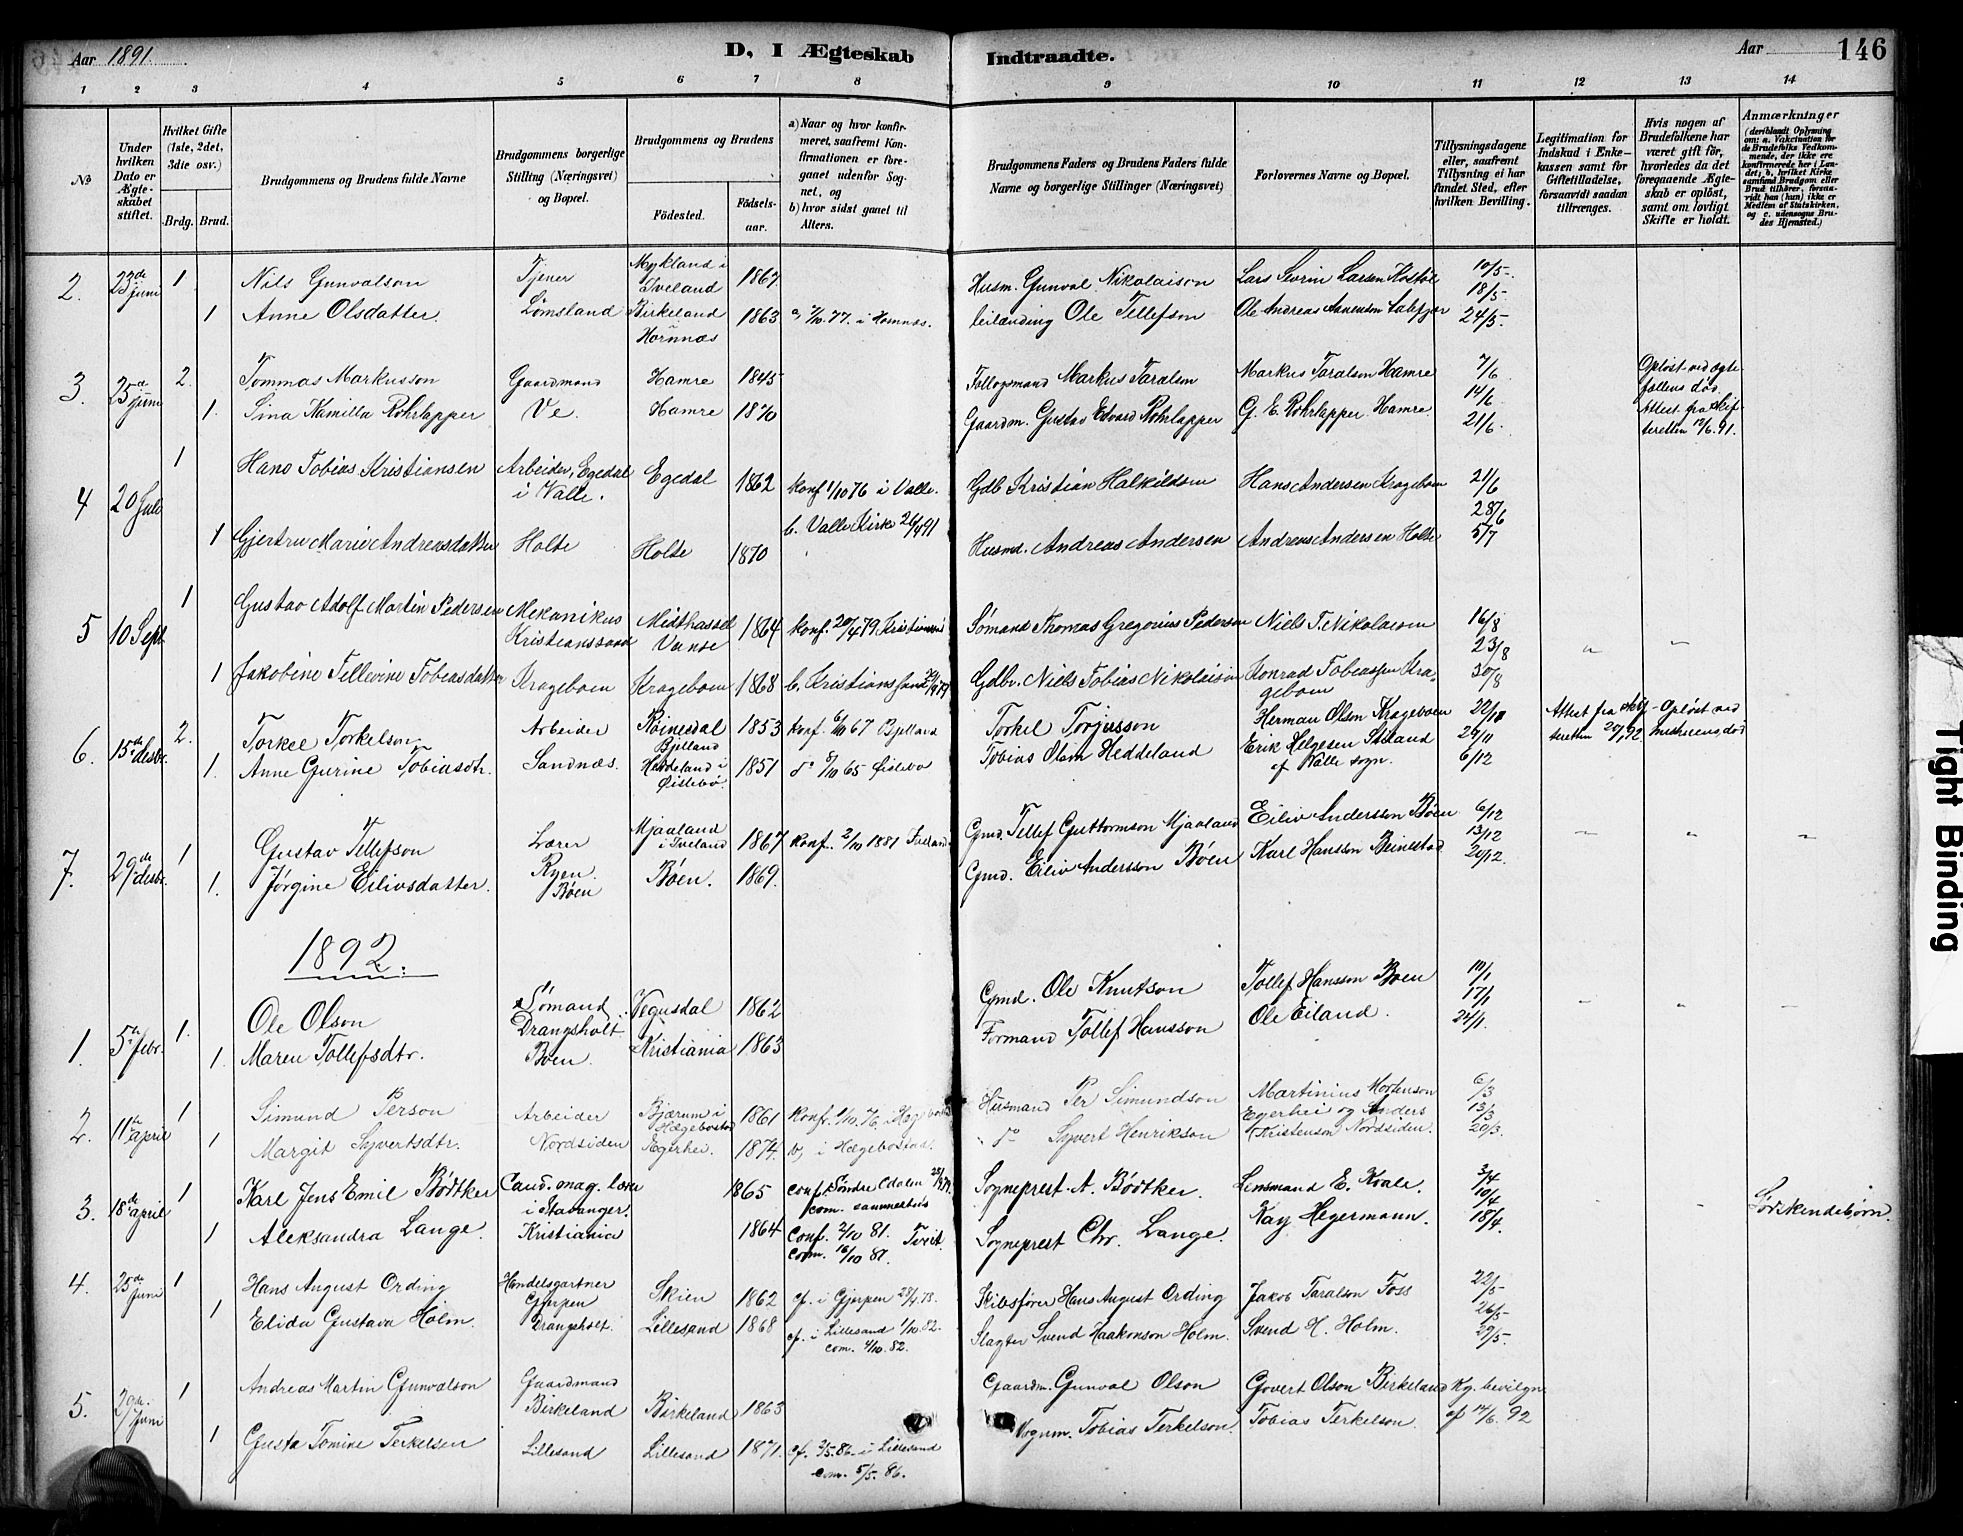 Aar 1891.
D, I Ægteskab Indtraadte.
Aar
146
1 2 3 4 5 6 7 8 9 10 11 12 13 14
№
Under hvilken Dato er Ægteskabet stiftet.
Hvilket Gifte (1ste, 2det, 3die osv.)
Brdg. Brud.
Brudgommens og Brudens fulde Navne
Brudgommens borgerlige Stilling (Næringsvei) og Bopæl.
Brudgommens og Brudens
Fødested.
Fødselsaar.
a) Naar og hvor konfirmeret, saafremt Konfirmationen er foregaaet udenfor Sognet, og
b) hvor sidst gaaet til Alters.
Brudgommens Faders og Brudens Faders fulde Navne og borgerlige Stillinger (Næringsvei)
Forlovernes Navne og Bopæl.
Tillysningsdagene eller, saafremt Tillysning ei har fundet Sted, efter hvilken Bevilling.
Legitimation for Indskud i Enkekassen samt for Giftetilladelse, forsaavidt saadan tiltrænges.
Hvis nogen af Brudefolkene har været gift før, hvorledes da det foregaaende Ægteskab er opløst, samt om lovligt Skifte er holdt.
Anmærkninger
(deriblandt Oplysning om: a. Vakcination for de Brudefolks Vedkommende, der ikke ere konfirmerede her i Landet; b. hvilket Kirkesamfund Brudgom eller Brud tilhører, forsaavidt han (hun) ikke er Medlem af Statskirken, og c. udensogns Brudes Hjemsted.)
2. 23de juni 1 Nils Gunvalson Tjener Mykland i Iveland 1867 Husm. Gunval Nikolaison Lars Severin Larsen Kostøl 10/5-
1 Anne Olsdatter. Lømsland Birkeland i Hornnæs 1863 a, 7/10.77. i Hornnæs. leilænding Ole Tellefson Ole Andreas Aanenson 18/5 24/5-
3. 25de juni 2. Tommas Markusson Gaardmand Hamre 1845 Markus Taralsen Markus Taralson Hamre 7/6 Opløst ved ægtefællens død
1. Sina Kamilla Rohrlapper Ve. Hamre 1870 Gaardm. Gustav Edvard Rohrlapper G. E. Rohrlapper Hamre 14/6 21/6 Attest fra skifteretten 12/6.91.
4 20 Juli 1 Hans Tobias Kristiansen Arbeider, Egedal i Valle. Egedal 1862 konf. 1/10 76 i Valle. Gdb Kristian Halkildsen Hans Andersen Krageboen 21/6
b. Valle Kirke 26/4 91 28/6
1 Gjertru Marie Andreasdatter Holte Holte 1870 Husmd. Andreas Andersen Andreas Andersen Holte 5/7
5 10 Sept 1 Gustav Adolf Martin Pedersen Mekanikus Kristianssand Midthassel Vanse 1864 konf. 20/4 79 Kristianssand Sømand Thomas Gregorius Pedersen Niels T. Nikolaisen 16/8 23/8
1 Jakobine Tellevine Tobiasdatter Krageboen Krageboen 1868 b. Kristianssand Gdbr. Niels Tobias Nikolaison Konrad Tobiassen Krageboen 30/8
6. 15de desbr. 2. Torkel Torkelson Arbeider Røinesdal Bjelland 1853 konf. 6/10 67 Bjelland Torkel Torjusson Herman Olson Krageboen 22/11 Attest fra skifteretten 20/1 92. Opløst ved hustruens død
1. Anne Gurine Tobiasdtr. Sandnæs. Heddeland i Øislebø. 1851 do 8/10 65 Øislebø Tobias Olsen Heddeland Erik Helgesen Stiland af Valle sogn. 29/11 6/12
7. 29de desbr. 1 Gustav Tellefson Lærer Ryen. Mjaaland i Iveland 1867 konf. 2/10 1881 Iveland Gmd. Tellef Guttormson Mjaaland Eiliv Andersson Bøen 6/12 13/12
1. Jørgine Eilivsdatter. Bøen Bøen. 1869. Gmd. Eiliv Andersson Bøen Karl Hansson Beinestad 20/12.
1892.
1. 5te febr. 1. Ole Olson Sømand Drangsholt. Vegusdal 1862 Gmd. Ole Knutson Tollef Hansson Boen 10/1 17/1
1. Maren Tollefsdtr. Boen. Kristiania 1863 Formand Tollef Hansson Ole Eiland. 24/1.
2. 11te april 1 Simund Person Arbeider Bjærum i Hægebostad 1861 konf. 1/10 76. i Hægebostad Husmand Per Simundson Martinius Mortenson Egerhei og Anders Kristenson Nordsiden. 6/3 13/3
1 Margit Syvertsdtr. Nordsiden Egerhei. 1874. b, i Hægebostad. " do Syvert Henrikson 20/3.
3. 18de april 1 Karl Jens Emil Bødtker Cand. mag. lærer i Stavanger. 1865 conf. Søndre Odalen com. sammesteds Sogneprest A. Bødtker. Lensmand E. Kvale. 3/4 10/4 Sødskendebørn.
1 Aleksandra Lange. Kristiania 1864 Conf. 2/10 81. Tveit. com. 16/10 81. Sogneprest Chr. Lange. Kay Hegermann. 18/4.
4. 25de Juni 1 Hans August Ording Handelsgartner Gjerpen Skien 1862 cf. i Gjerpen 28/4.78. Skibsfører Hans August Ording Jakob Taralson Foss 22/5-
1 Elida Gustava Holm. Drangsholt. Lillesand 1868 cf. i Lillesand 1/10.82. com. 4/10.82. Slagter Svend Haakonson Holm. Svend H. Holm. 26/5- 29/5-
5. 29de Juni 1 Andreas Martin Gunvalson Gaardmand Birkeland Birkeland 1863 Gaardm. Gunval Olson Govert Olson Birkeland Kg. bevilgn af 14/6. 92
1 Gusta Tomine Terkelsen Lillesand Lillesand 1871. cf. 3/5.86. i Lillesand com. 5/5. 86. Vognm. Tobias Terkelson. Tobias Terkelson.
Tight Binding